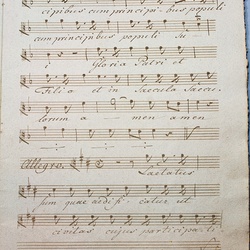 cipibus cum principibus populi
cum principibus populi su
i Gloria Patri et
Filio et in Saecula Saecu
lorum a men amen
Allegro. Laetatus
sum quae aedificatur ut
civitas cujus participati